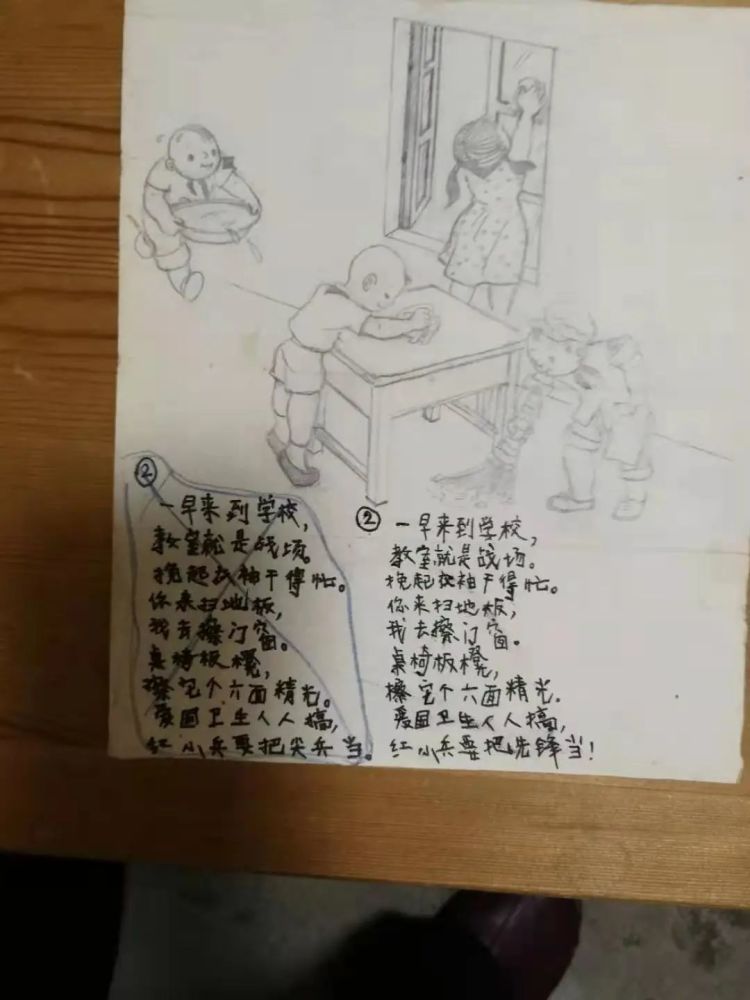 ②
一早来到学校，
教室就是战场。
挽起衣袖干得忙。
你来扫地板，
我去擦门窗。
桌椅板櫈，
擦它个六面精光。
爱国卫生人人搞，
红小兵要把尖兵当。
②
一早来到学校，
教室就是战场。
挽起衣袖干得忙。
你来扫地板，
我去擦门窗。
桌椅板櫈，
擦它个六面精光。
爱国卫生人人搞，
红小兵要把先锋当！